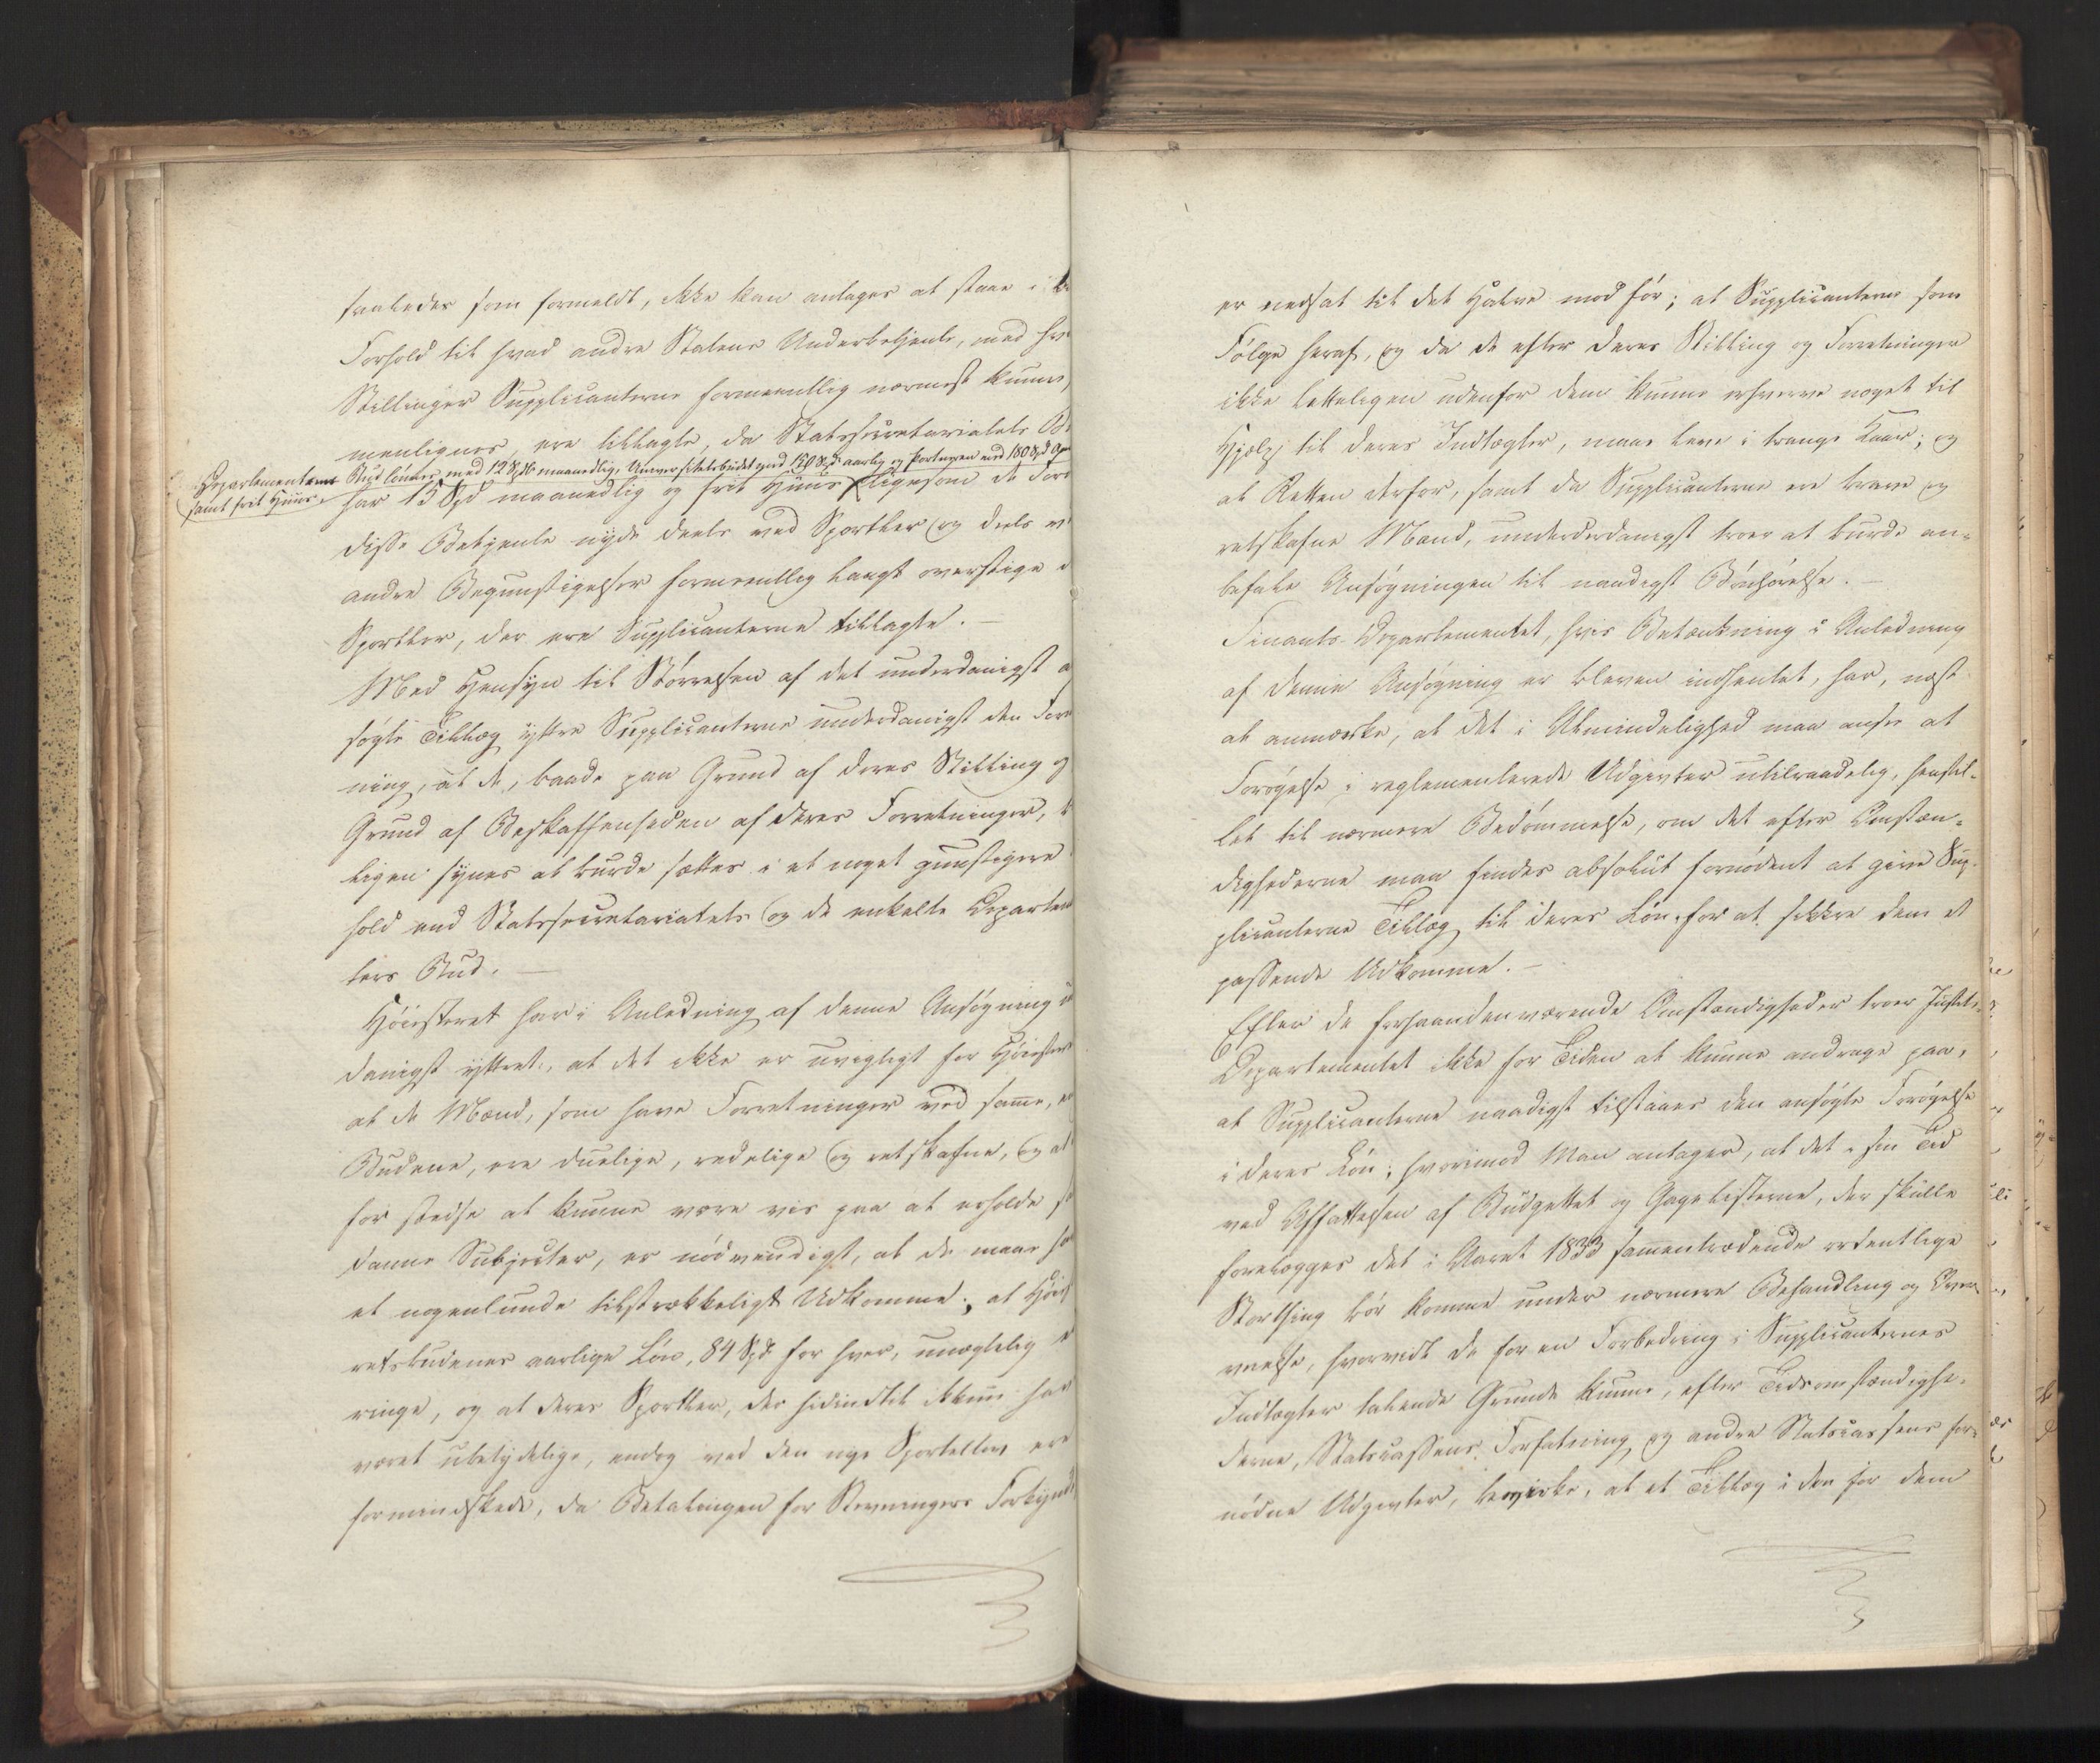 saaledes som formeldt, ikke kan antages at staae i
Forhold til hvad andre Statens Underbetjente, med hvis
Stillinger Supplicanterne formeentlig nærmest kunne
menlignes, ere tillagte, da Statssecretariatets Bu
Departementernes Bud lønnes med 12 Spd maanedlig, Universitetsbudet med 150 Spd aarlig og Portneren med 180 Spd
samt frit Huus.
har 15 Spd maanedlig og frit Huus ligesom de Ford
disse Betjente nyde deels ved Sportler og deels ved
andre Begunstigelser formeentlig langt overstige de
Sportler, der ere Supplicanterne tillagte. —
Med Hensyn til Størrelsen af det underdanigst a
søgte Tillæg yttre Supplicanterne underdanigst den For
ning, at de, baade paa Grund af deres Stilling og
Grund af Beskaffenheden af deres Forretninger,
ligen synes at burde sættes i et noget gunstigere
hold end Statssecretariatets og de enkelte Departem
ters Bud. —
Høiesteret har i Anledning af denne Ansøgning u
danigst yttret, at det ikke er uvigtigt for Høiestere
at de Mænd, som have Forretninger ved samme, e
Budene, ere duelige, redelige og retskafne, og at
for stedse at kunne være vis paa at erholde s
danne Subjecter, er nødvendigt, at de maae ha
et nogenlunde tilstrækkeligt Udkomme; at Høies
retsbudenes aarlige Løn, 84 Spd for hver, unægtelig e
ringe, og at deres Sportler, der hidindtil ikkun har
været ubetydelige, endog ved den nye Sportellov ere
formindskede, da Betalingen for Stevningers Forkynd
er nedsat til det Halve mod før; at Supplicanterne som
Følge heraf, og da de efter deres Stilling og Forretninger
ikke letteligen udenfor dem kunne erhverve noget til
Hjælp til deres Indtægter, maae leve i trange Kaar; og
at Retten derfor, samt da Supplicanterne ere brave og
retskafne Mænd, underdanigst troer at burde an-
befale Ansøgningen til naadigst Bønhørelse. —
Finants-Departementet, hvis Betænkning i Anledning
af denne Ansøgning er bleven indhentet, har, næst
at anmærke, at det i Almindelighed maa ansee at
Forøgelse i reglementerede Udgivter utilraadelig, henstil-
let til nærmere Bedømmelse, om det efter Omstæn-
dighederne maa findes absolut fornødent at give Sup-
plicanterne Tillæg til deres Løn, for at sikkre dem et
passende Udkomme. —
Efter de forhaandenværende Omstændigheder troer Justits-
Departementet ikke for Tiden at kunne andrage paa,
at Supplicanterne naadigst tilstaaes den ansøgte Forøgelse
i deres Løn; hvorimod Man antager, at det i sin Tid
ved Affattelsen af Büdgettet og Gagelisterne, der skulle
forelægges det i Aaret 1833 sammentrædende ordentlige
Storthing bør komme under nærmere Behandling og Over-
veielse, hvorvidt de for en Forbedring i Supplicanternes
Indtægter talende Grunde kunne, efter Tidsomstændighe-
derne, Statscassens Forfatning og andre Statscassens for-
nødne Udgivter, bevirke, at et Tillæg i den for dem